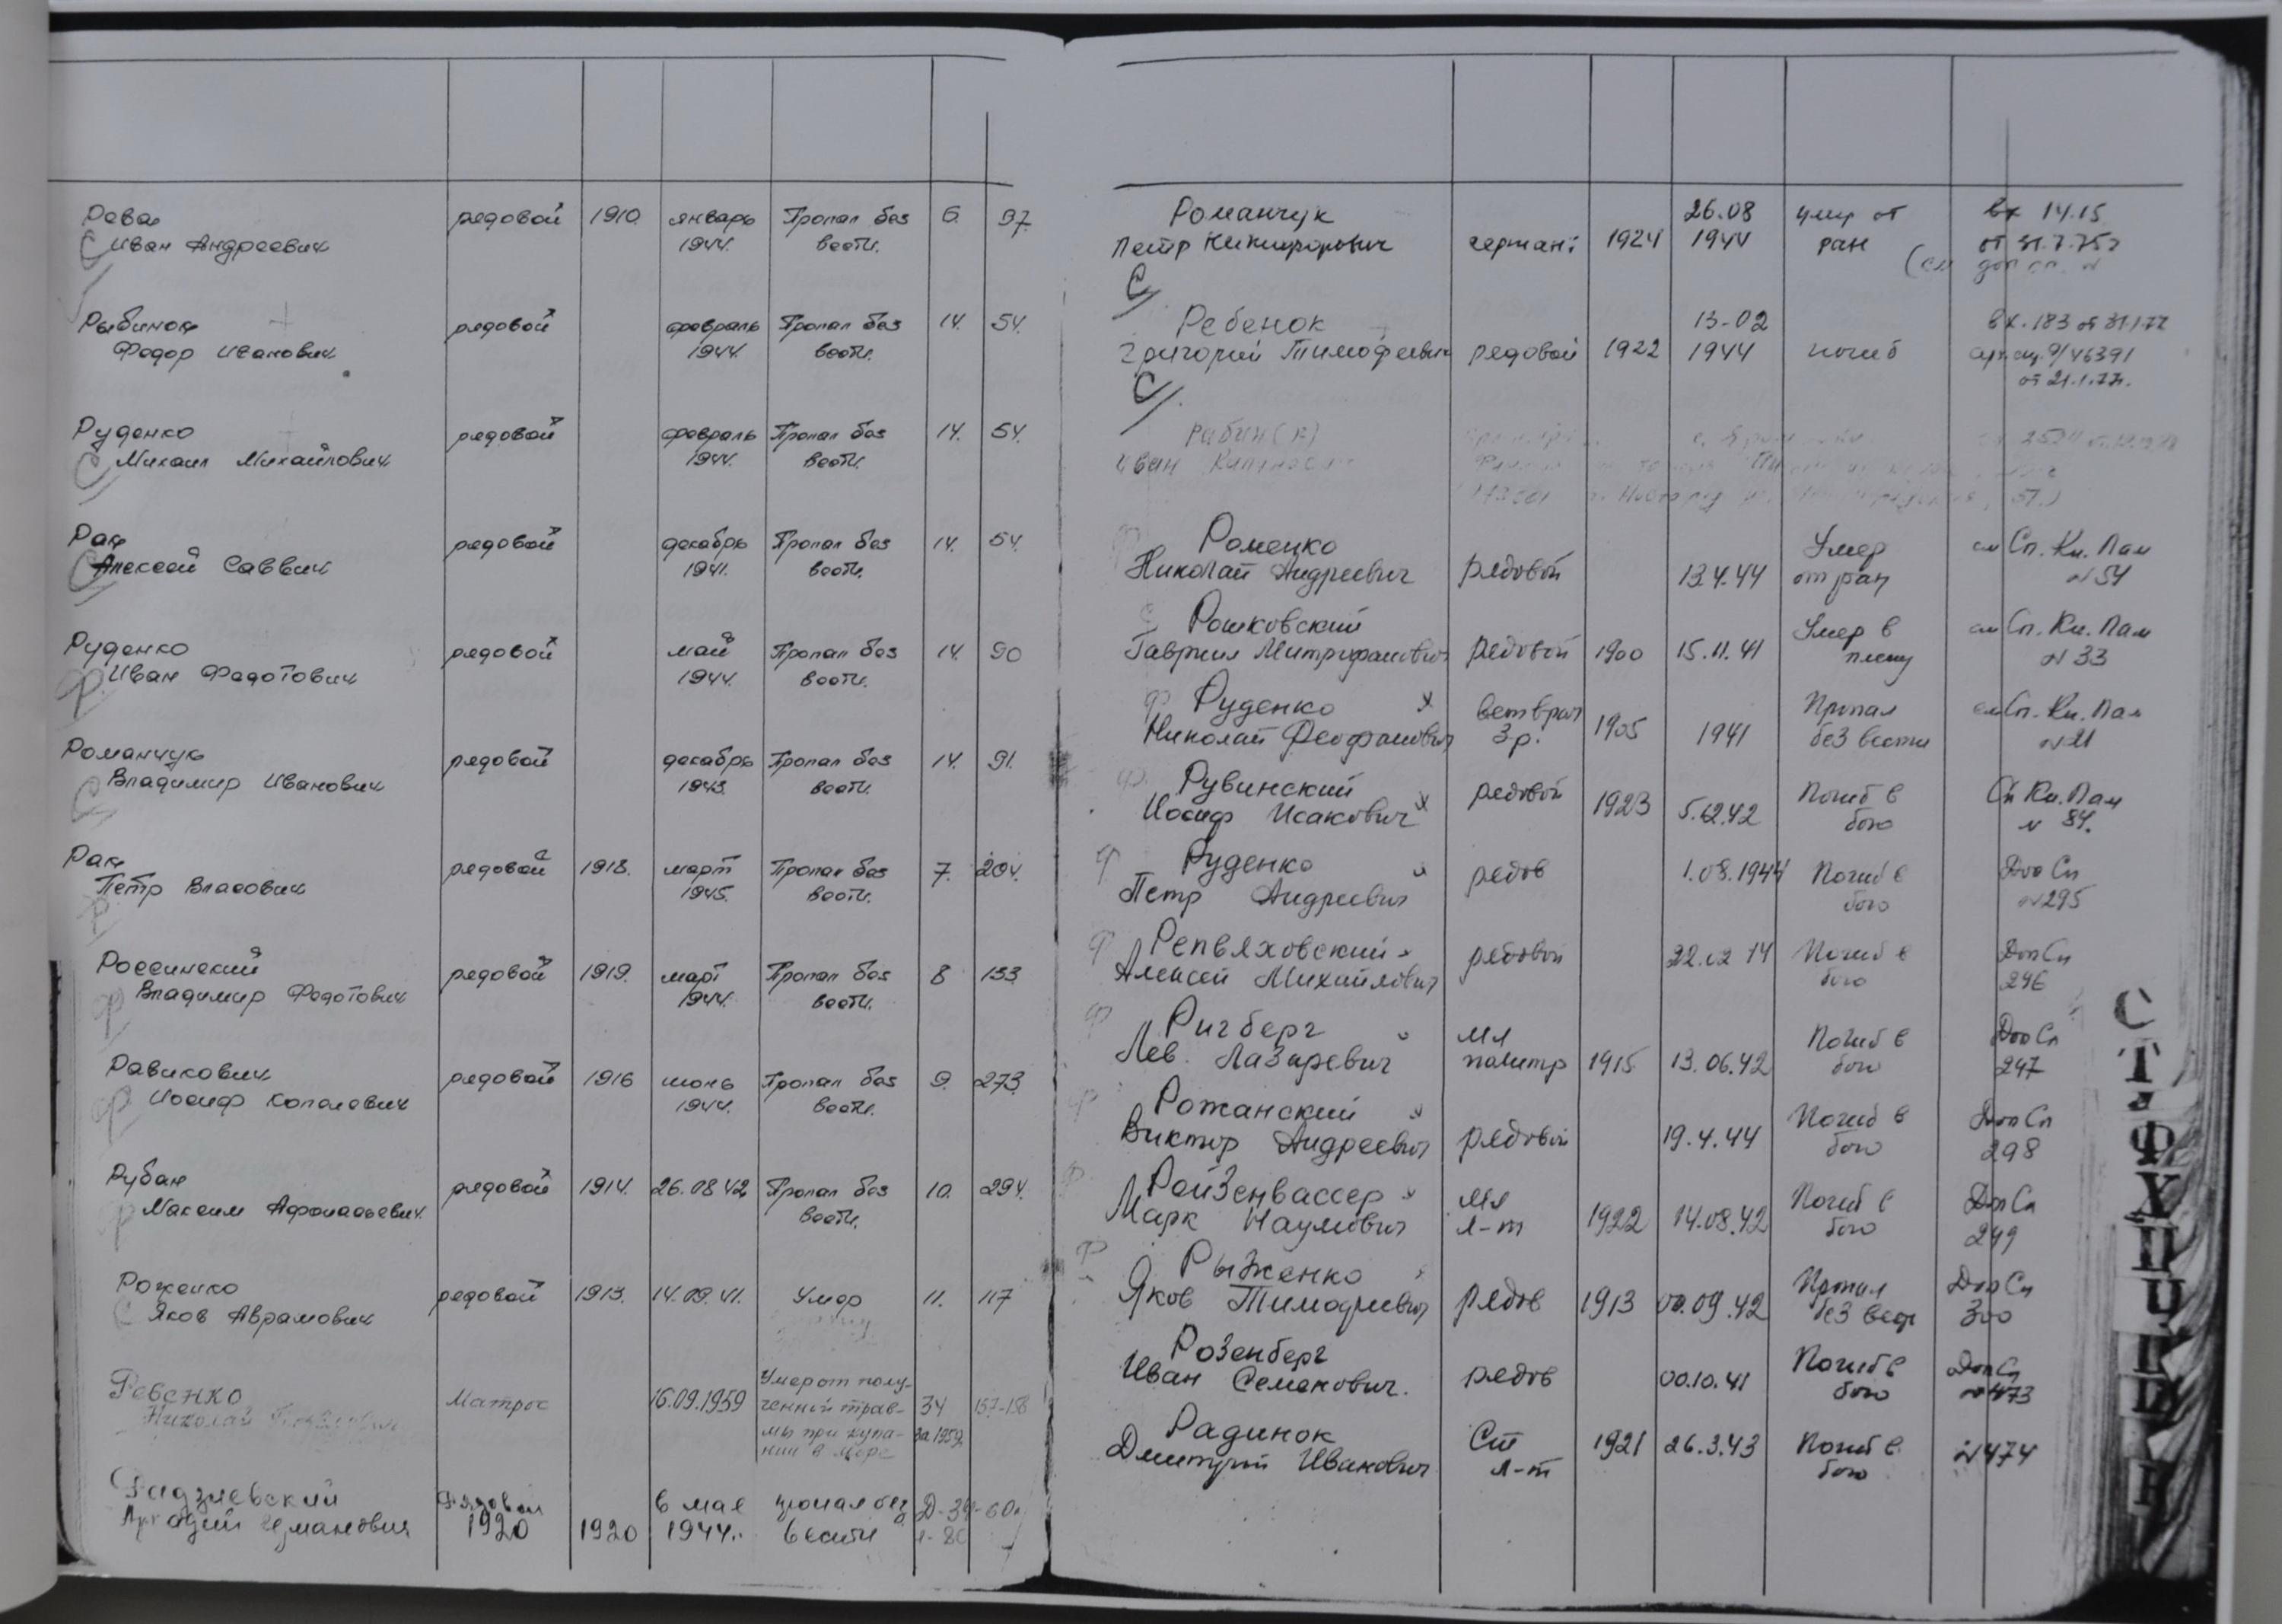 Рева рядовой 1910. январь Пропал без 6. 97.
С Иван Андреевич 1944. вести.
Рыбинок рядовой февраль Пропал без 14. 54.
Федор Иванович 1944. вести.
Руденко рядовой февраль Пропал без 14. 54.
С Михаил Михайлович 1944. вести.
Рак рядовой декабрь Пропал без 14. 54.
С Алексей Саввич 1941. вести.
Руденко рядовой май Пропал без 14. 90
Ф Иван Федотович 1944. вести.
Романчук рядовой декабрь Пропал без 14. 91.
С Владимир Иванович 1943. вести.
Рак рядовой 1918. март Пропал без 7. 204.
Ф Петр Власович 1945. вести.
Россинский рядовой 1919. март Пропал без 8 153.
Ф Владимир Федотович 1944. вести.
Равикович рядовой 1916 июнь Пропал без 9. 273.
Ф Иосиф Копелевич 1944. вести.
Рубан рядовой 1914. 26.08.42 Пропал без 10. 294.
Ф Максим Афонасьевич. вести.
Роженко рядовой 1913. 14.09.41. Умер 11. 117
С Яков Аврамович
Ревенко Матрос 16.09.1959 Умер от полу- 34 157-158
Николай ченной трав- за 1959г
мы при купа-
нии в море
Радзиевский Рядовой в мае пропал без Д-39-60г
1920 1920 1944г. вести л-80
Романчук 26.08 умер от вх 14.15
Петр Никифорович сержант 1924 1944 ран от 31.7.75г
С/ (см доп сп. N
Ребенок 13-02 вх.183 от 31.1.77
Григорий Тимофеевич рядовой 1922 1944 погиб 9/46391
С/. от 21.1.77г.
Рабин(к)
Иван
Роменко Умер см Сп. Кн. Пам
Николай Андреевич рядовой 13.4.44 от ран N 54
Рошковский Умер в см Сп. Кн. Пам
Гавриил Митрофанович рядовой 1900 15.11.41 плену N 33
Ф Руденко х ветврач Пропал см Сп. Кн. Пам
Николай Феофанович 3р. 1905 1941 без вести N 21
Ф Рувинский рядовой 1923 Погиб в Сп Кн. Пам
Иосиф Исакович х 5.02.42 бою N 84.
Ф Руденко редов 1.08.1944 Погиб в Доп Сп
Петр Андреевич бою N 295
Ф Репьяховский рядовой 22.02 14 Погиб в Доп Сп
Алексей Михайлович бою 296
Ф Ригберг мл Погиб в Доп Сп
Лев Лазаревич политр 1915 13.06.42 бою 297
Ф Рожанский Погиб в Доп Сп
Виктор Андреевич рядовой 19.4.44 бою 298
Ф Ройзенвассер х мл Погиб в Доп Сп
Марк Наумович л-т 1922 14.08.42 бою 299
Ф Рыженко Пропал Доп Сп
Яков Тимофеевич рядов 1913 00.09.42 без вест 300
Розенберг Погиб в Доп Сп
Иван Семенович. рядов 00.10.41 бою N 473
Радинок Ст 1921 26.3.43 Погиб в N 474
Дмитрий Иванович л-т бою
С
Т
У
Ф
Х
Ц